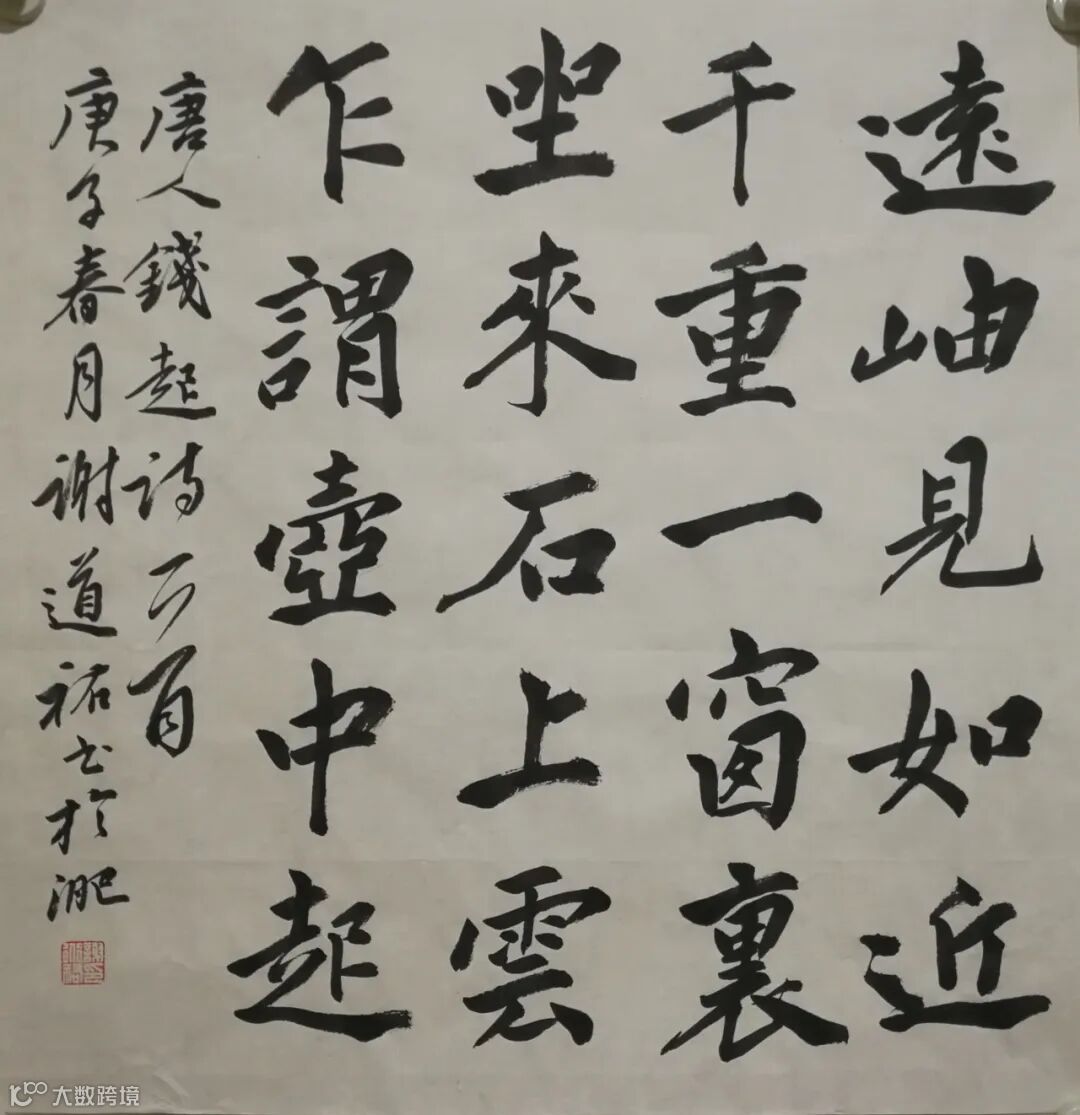 遠岫見如近
千重一窗裏
坐來石上雲
乍謂壺中起
唐人錢起詩一首
庚子春月謝道祐书於淝
大数跨境